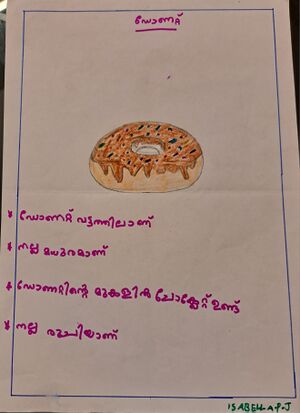 ഡോണറ്റ്
* ഡോണറ്റ് വട്ടത്തിലാണ്
* നല്ല മധുരമാണ്
* ഡോണറ്റിന്റെ മുകളിൽ ചോക്ലേറ്റ് ഉണ്ട്
* നല്ല രുചിയാണ്
ISABELLA P.J